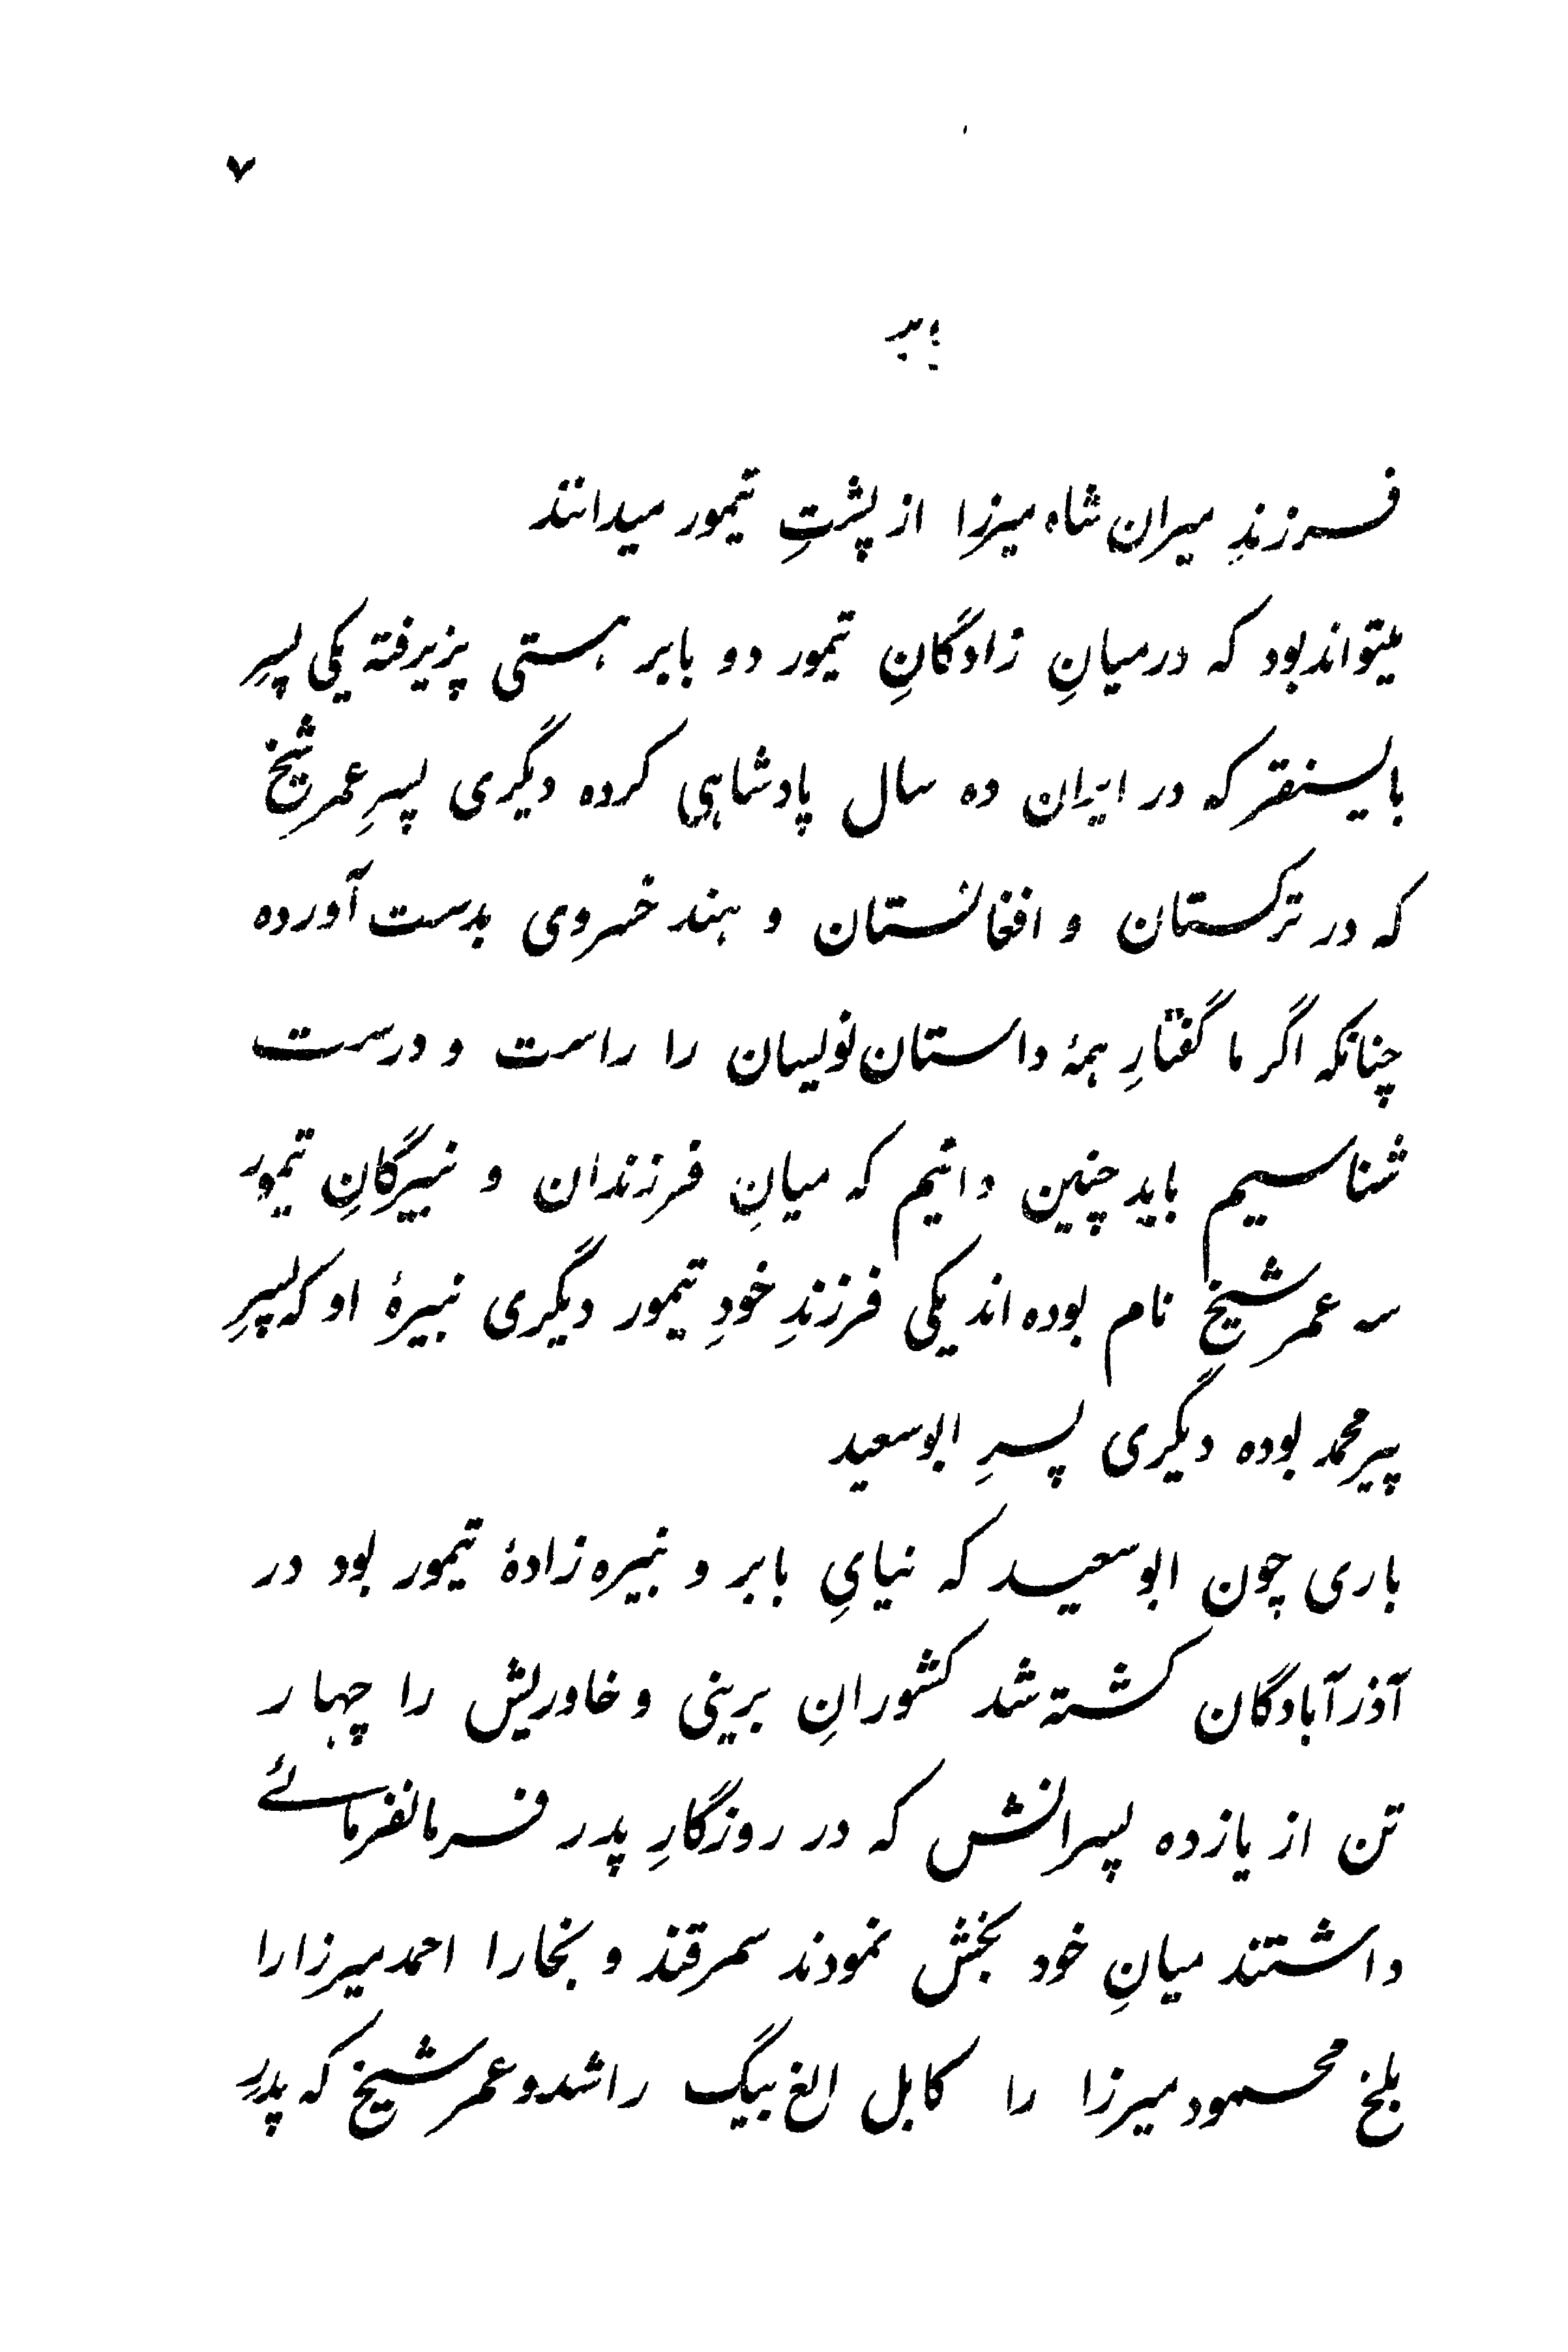 ۷
بابر
فرزندِ میران شاه میرزا از پشتِ تیمور میدانند
میتواند بود که درمیانِ زادگانِ تیمور دو بابر هستی پزیرفته یکی پسرِ
بایسنقر که در ایران ده سال پادشاهی کرده دیگری پسرِ عمر شیخ
که در ترکستان و افغانستان و هند خسروی بدست آورده
چنانکه اگر ما گفتارِ همهٔ داستان نویسان را راست و درست
شناسیم باید چنین دانیم که میانِ فرزندان و نبیرگانِ تیمور
سه عمر شیخ نام بوده اند یکی فرزندِ خودِ تیمور دیگری نبیرهٔ او که پسرِ
پیر محمد بوده دیگری پسرِ ابو سعید
باری چون ابو سعید که نیایِ بابر و نبیره زادهٔ تیمور بود در
آذر آبادگان کشته شد کشورانِ برینی و خاوریش را چهار
تن از یازده پسرانش که در روزگارِ پدر فرمانفرمائے
داشتند میانِ خود بخش نمودند سمرقند و بخارا احمد میرزا را
بلخ محمود میرزا را کابل الغ بیگ را شد و عمر شیخ که پدرِ